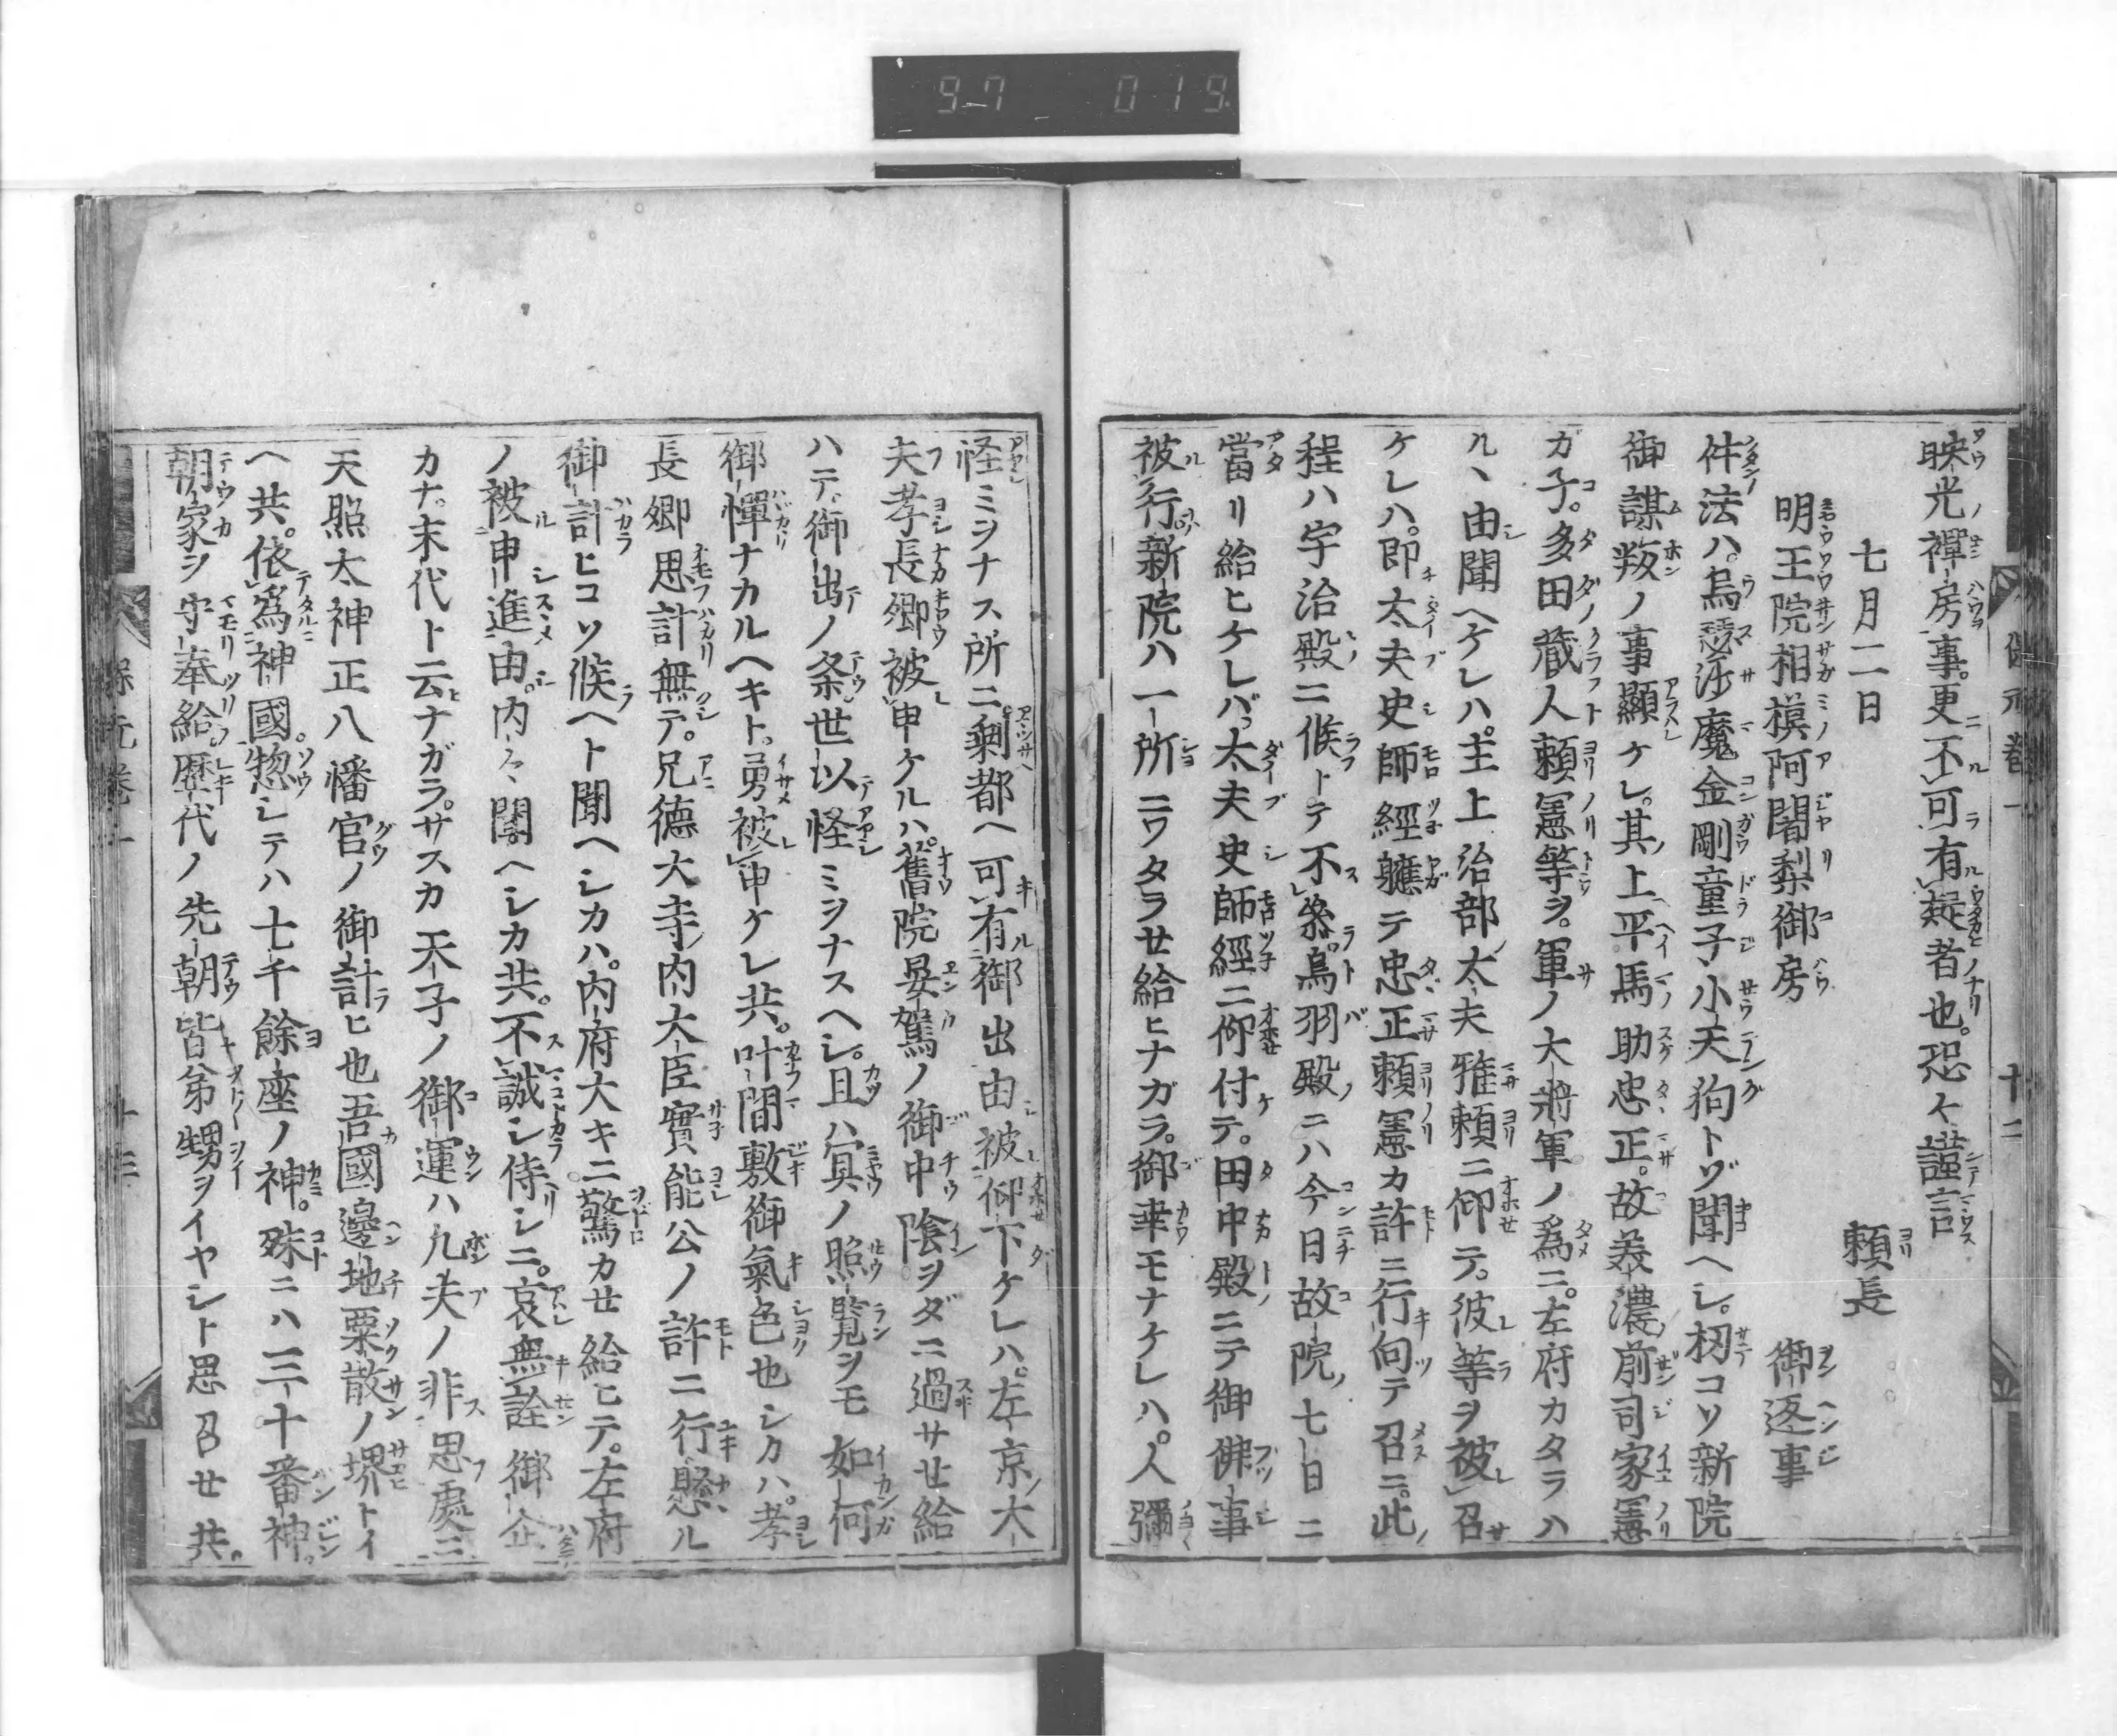 97 019
映光禪房事。更不可有疑者也。恐々謹言
七月二日
頼長
明王院相摸阿闍梨御房
御返事
件法ハ。烏瑟沙魔金剛童子小天狗トゾ聞ヘシ。扨コソ新院
御謀叛ノ事顯ケレ。其上平馬助忠正。故美濃前司家憲
ガ子。多田藏人頼憲等ヲ。軍ノ大將軍ノ爲ニ。左府カタラハ
ル丶由聞ヘケレハ。主上治部太夫雅頼ニ仰テ。彼等ヲ被召
ケレハ。即太夫史師經軈テ忠正頼憲カ許ニ行向テ召ニ。此
程ハ宇治殿ニ候トテ不參。鳥羽殿ニハ今日故院ノ七日ニ
當リ給ヒケレバ。太夫史師經ニ仰付テ。田中殿ニテ御佛事
被行。新院ハ一所ニワタラせ給ヒナガラ。御幸モナケレハ。人彌
怪ミヲナス所ニ。剰都ヘ可有御出由被仰下ケレハ。左京大
夫孝長卿被申ケルハ。舊院晏駕ノ御中陰ヲダニ過サせ給
ハテ。御出ノ条世以怪ミヲナスヘシ。且ハ冥ノ照覽ヲモ如何
御憚ナカルヘキト。勇被申ケレ共。叶間敷御氣色也シカハ。孝
長卿思計無テ。兄德大寺内大臣實能公ノ許ニ行懸ル
御計ヒコソ候ヘト聞ヘシカハ。内府大キニ驚カせ給ヒテ。左府
ノ被申進由。内々聞ヘシカ共。不誠シ侍シニ。哀無詮御企
カナ。末代ト云ナガラ。サスカ天子ノ御運ハ凡夫ノ非思處ニ
天照太神正八幡宮ノ御計ヒ也吾國邊地粟散ノ堺トイ
ヘ共。依爲神國。惣シテハ七千餘座ノ神。殊ニハ三十番神。
朝家ヲ守奉給。歷代ノ先朝皆弟甥ヲイヤシト思召せ共。
保元卷一 十二
保元卷一